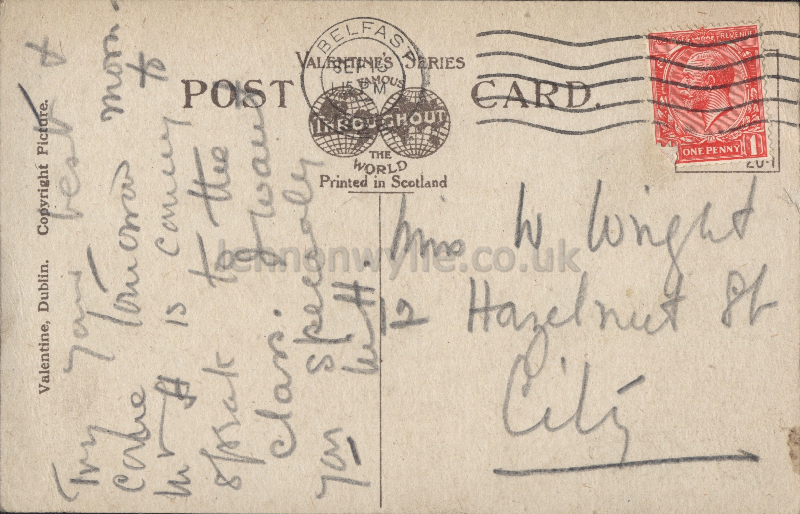 POST CARD.
VALENTINE'S SERIES
FAMOUS
THROUGHOUT
THE
WORLD
Printed in Scotland
BELFAST
SEP 15
PM
REVENUE
ONE PENNY
1D
Valentine, Dublin. Copyright Picture.
Try your best &
come Tomorrow morn-
Mr H is coming to
speak to the
class. I want
you specially
WH.
Miss W Wright
12 Hazelnut St
City
lennonwylie.co.uk